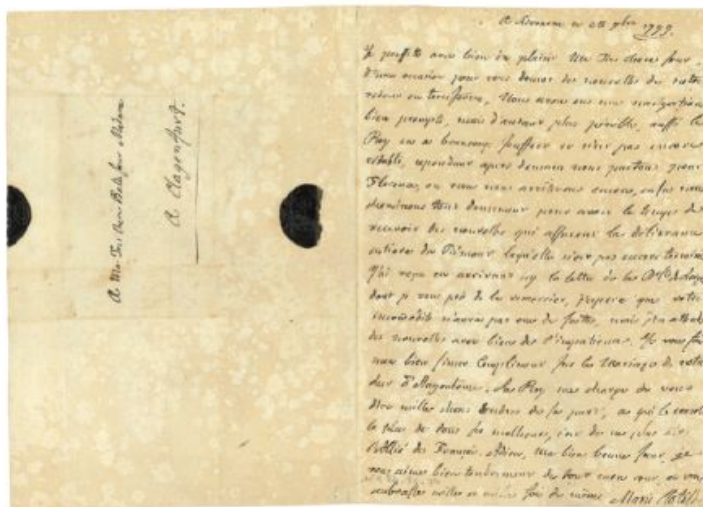 A Ma Très Chere Belle Sœur Madame
A Clagenfurt.
A ce 1799.
Je profite avec bien du plaisir Ma Très chere sœur,
d'une occasion pour vous donner des nouvelles de notre
retour en terreferme, Nous avons eus une navigation
bien prompte, mais d'autant plus penible, aussi le
Roy en a beaucoup souffert et n'est pas encore
retabli, cependant après demain nous partons pour
Florence, ou nous nous arreterons encore, enfin nous
cheminons tous doucement pour avoir le temps de
recevoir des nouvelles qui assurent la delivrance
entiere du Piemont laquelle n'est pas encore terminée
J'ai reçu en arrivant icy la lettre de la
dont je vous prie de la remercier, j'espere que votre
incomodité n'aura pas eue de suites, mais j'en attend
des nouvelles avec bien de l'impatience. Je vous fait
mon bien sincer Compliment sur le Mariage de votre
sœur D'Angouleme. Le Roy me charge de vous
dire milles choses tendres de sa part, ce qui le console
le plus de tous ses malheurs, c'est de ne plus être
l'Allié des Français. Adieu, ma bien bonne sœur, je
vous aimes bien tendrement de tout mon cœur, et vous
embrasses milles et milles fois de même Marie Clotilde